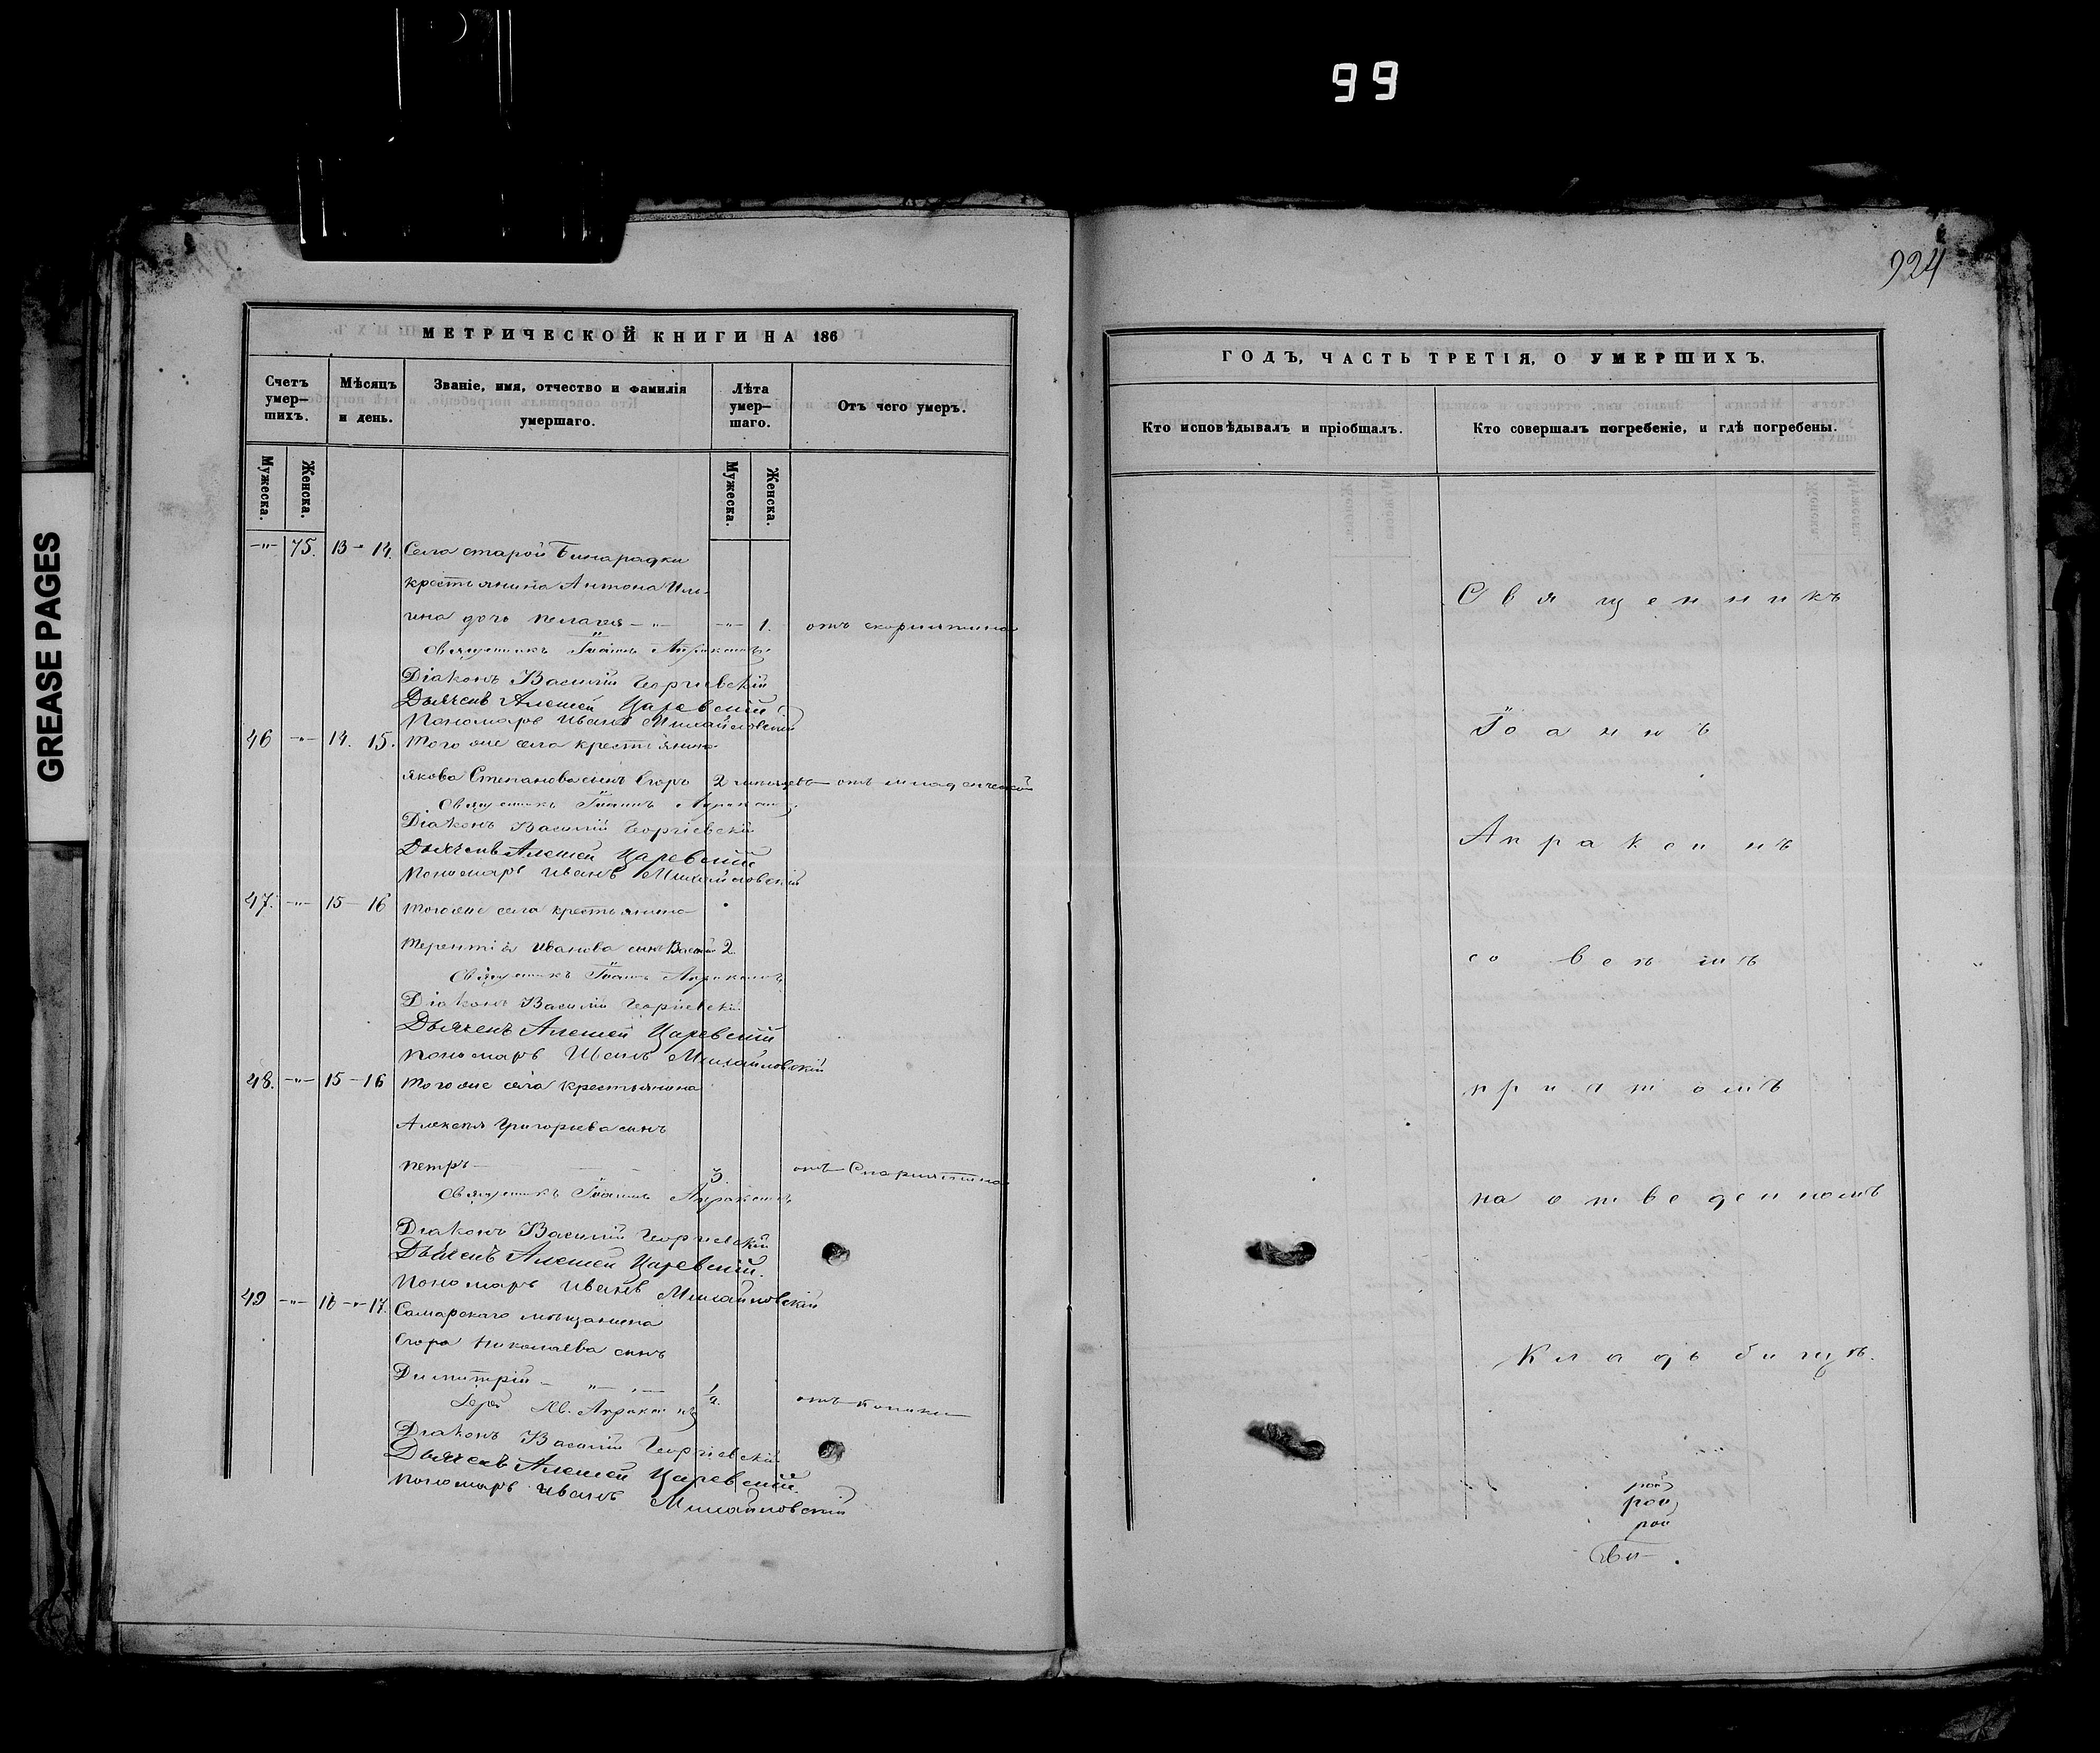 99
GREASE PAGES
924
МЕТРИЧЕСКОЙ КНИГИ НА 186
Счетъ умер-шихъ.
Мѣсяцъ и день.
Званіе, имя, отчество и фамилія умершаго.
Лѣта умер-шаго.
Отъ чего умеръ.
Мужеска.
Женска.
Мужеска.
Женска.
-"- 75. 13-14. Села старой Бинарадки
крестьянина Антона Иль-
ина дочь Пелагея -"- -"- 1. отъ скорлятина
Священникъ Іоаннъ Апраксинъ
Діаконъ Василій Георгіевскій
Дьячекъ Алексей Царевскій
Пономарь Иванъ Михайловскій
46 -"- 14. 15. Того же села крестьянина
Якова Степанова сынъ Егоръ 2 отъ младенческой
Священникъ Іоаннъ Апраксинъ
Діаконъ Василій Георгіевскій
Дьячекъ Алексей Царевскій
Пономарь Иванъ Михайловскій
47. -"- 15-16 Того же села крестьянина
Терентія Иванова сынъ Василій 2
Священникъ Іоаннъ Апраксинъ
Діаконъ Василій Георгіевскій
Дьячекъ Алексей Царевскій
Пономарь Иванъ Михайловскій
48. -"- 15-16 Того же села крестьянина
Алексея Григорьева сынъ
Петръ 3. отъ Скорлятина
Священникъ Іоаннъ Апраксинъ
Діаконъ Василій Георгіевскій
Дьячекъ Алексей Царевскій.
Пономарь Иванъ Михайловскій
49 -"- 16-17. Самарскаго мѣщанина
Егора Николаева сынъ
Димитрій -"-
Іерей Ив. Апраксинъ
Діаконъ Василій Георгіевскій
Дьячекъ Алексей Царевскій.
Пономарь Иванъ Михайловскій
ГОДЪ, ЧАСТЬ ТРЕТІЯ, О УМЕРШИХЪ.
Кто исповѣдывалъ и пріобщалъ.
Кто совершалъ погребеніе, и гдѣ погребены.
Священникъ
Іоаннъ
Апраксинъ
со всемъ
притомъ
на отведенномъ
Кладьбищѣ.
рой
рой
рой